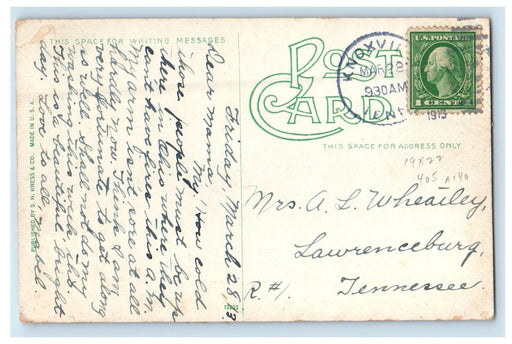 THIS SPACE FOR WRITING MESSAGES
Friday, March 28, 13
Dear Mama,
My! How cold
those people must be up
there in Ohio where they
can't have fires this a.m.
My arm isn't sore at all
hardly now. Think I am
very fortunate to get along
so well. Shall not do my
washing this week.
This is a beautiful bright
day. Love to all. Mabel
PUBLISHED BY S. H. KRESS & CO. MADE IN U.S.A.
POST
CARD.
THIS SPACE FOR ADDRESS ONLY
KNOXVILLE
MAR 28
9 30 AM
TENN.
1913
U.S. POSTAGE
1 CENT 1
19X22
405 A140
Mrs. A. L. Wheatley,
Lawrenceburg,
R#1. Tennessee.